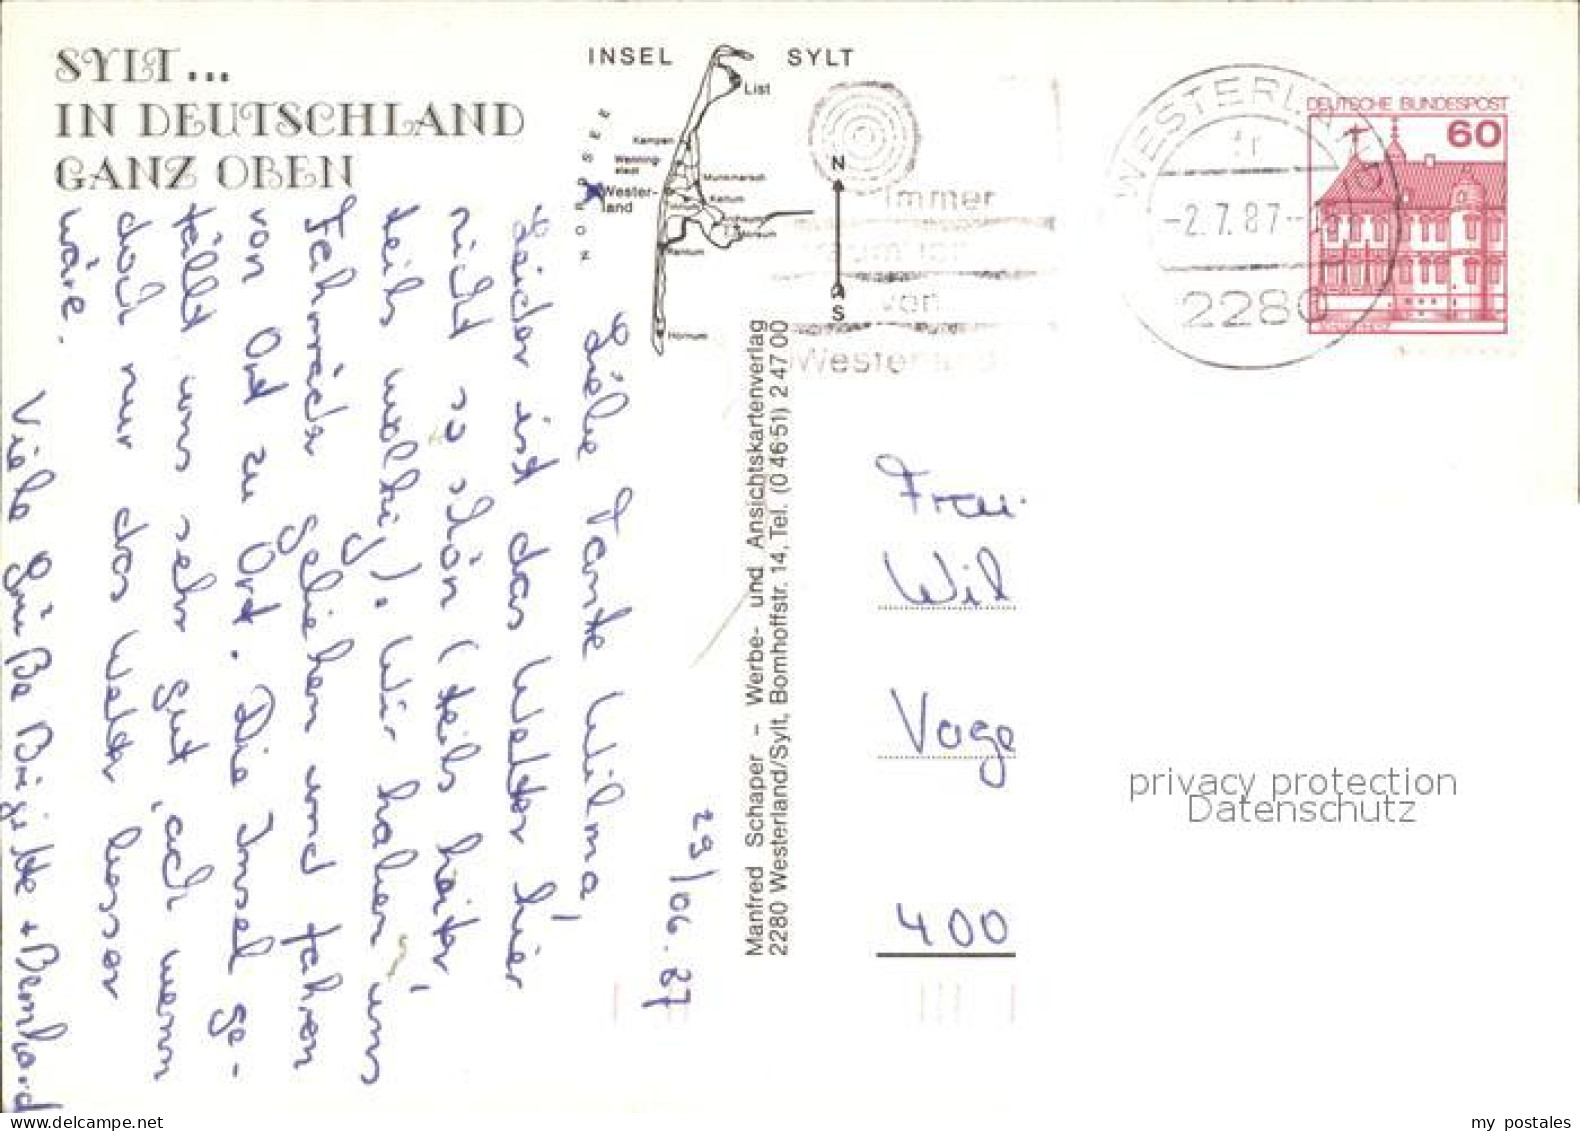 SYLT...
IN DEUTSCHLAND
GANZ OBEN
INSEL SYLT
List
Kampen
Wenning-
stedt
Munkmarsch
Wester-
land
Keitum
Morsum
Rantum
Hörnum
NORDSEE
N
S
Immer
von
Westerland
WESTERLAND
-2.7.87-
2280
DEUTSCHE BUNDESPOST
60
29/06.87
Liebe Tante Wilma,
leider ist das Wetter hier
nicht so schön (teils heiter,
teils wolkig). Wir haben uns
Fahrräder geliehen und fahren
von Ort zu Ort. Die Insel ge-
fällt uns sehr gut, ach wenn
doch nur das Wetter besser
wäre.
Viele Grüße Brigitte + Bernhard
Manfred Schaper – Werbe- und Ansichtskartenverlag
2280 Westerland/Sylt, Bomhoffstr. 14, Tel. (04651) 24700
Frau
Wil
Voge
400
privacy protection
Datenschutz
www.delcampe.net
my postales